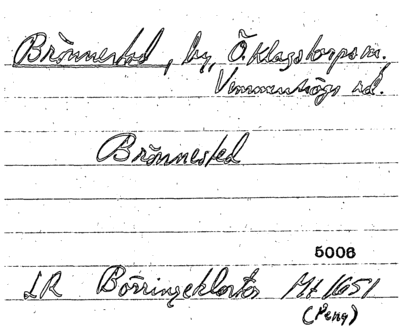 Brönnestad, by, Ö. Klagstorps sn.,
Vemmenhögs hd.
Brönnested
5006
LR Börringekloster Mt 1651
(Peng)